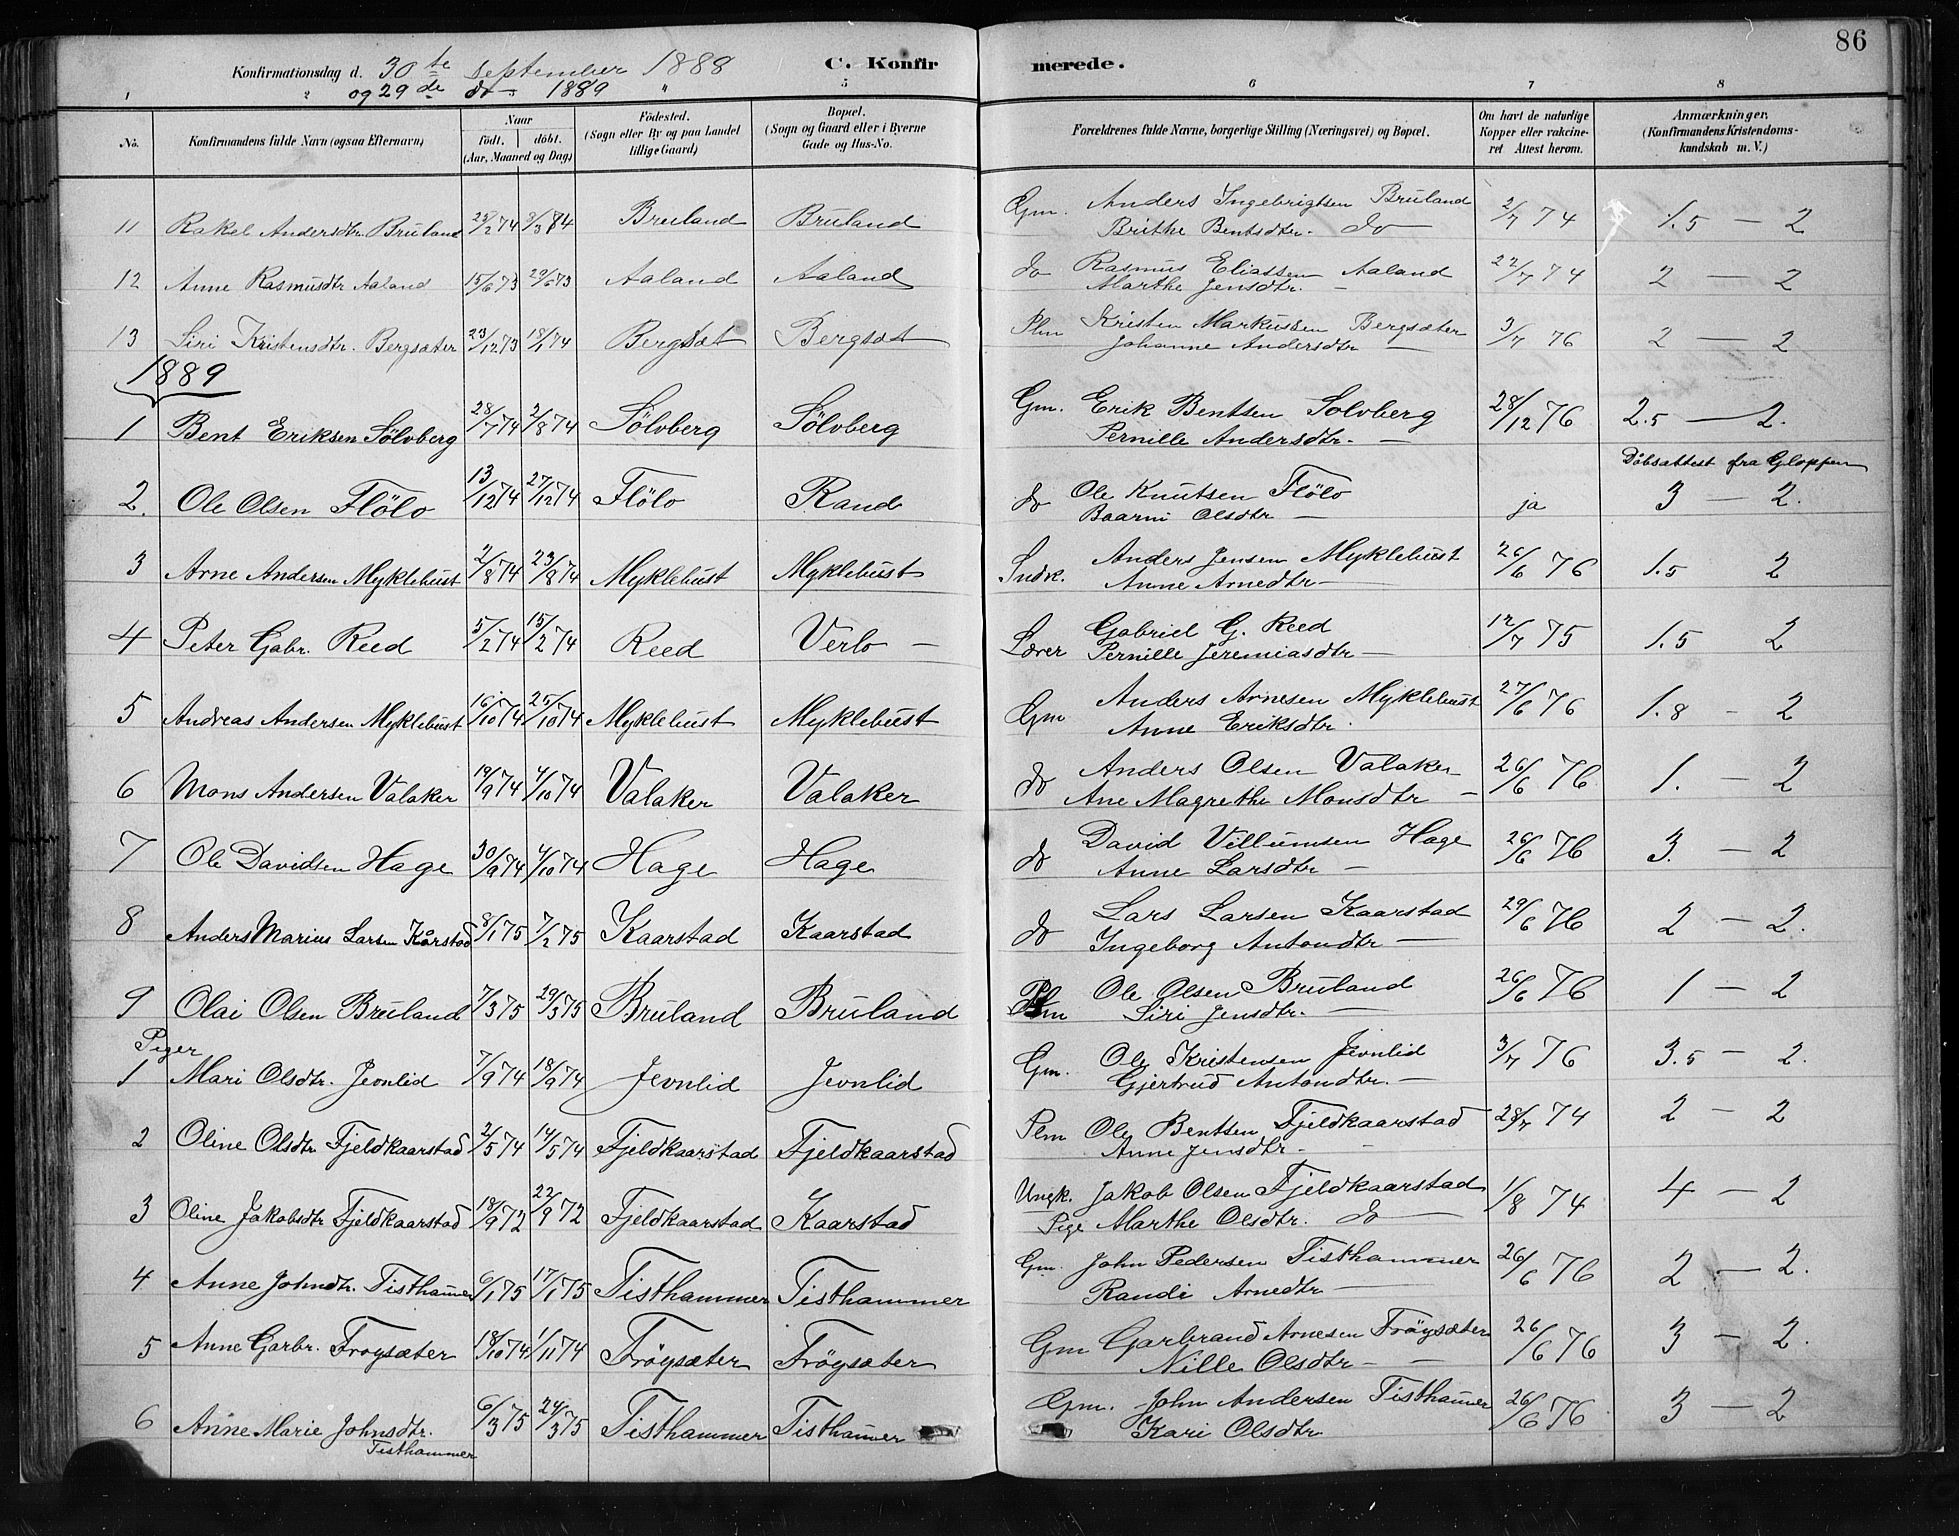 86
Konfirmationsdag d. 30te september 1888
og 29de do 1889
C. Konfirmerede.
1 2 5 6 7 8
No. Konfirmandens fulde Navn (ogsaa Efternavn) Naar födt. döbt. (Aar, Maaned og Dag) Födested. (Sogn eller By og paa Landet tillige Gaard) Bopæl. (Sogn og Gaard eller i Byerne Gade og Hus-No. Forældrenes fulde Navne, borgerlige Stilling (Næringsvei) og Bopæl. Om havt de naturlige Kopper eller vakcineret Attest herom. Anmærkninger. (Konfirmandens Kristendomskundskab m. V.)
11 Rakel Andersdtr. Bruland 25/2 74 3/3 84 Bruland Bruland Gm. Anders Ingebrigtsen Bruland 2/7 74 1.5 — 2
Brithe Bentsdtr. do
12 Anne Rasmusdtr Aaland 15/6 73 29/6 73 Aaland Aaland do Rasmus Eliassen Aaland 22/7 74 2 — 2
Marthe Jensdtr. —
13 Siri Kristensdtr. Bergsæter 23/12 73 18/1 74 Bergsæt Bergsæt Plm Kristen Markussen Bergsæter 3/7 76 2 — 2
Johanne Andersdtr —
1889
1 Bent Eriksen Sölvberg 28/7 74 2/8 74 Sölvberg Sölvberg Gm. Erik Bentsen Solvberg 28/12 76 2.5 — 2.
Pernille Andersdtr. —
Döbsattest fra Gloppen
2. Ole Olsen Flölo 13/12 74 27/12 74 Flölo Rand do Ole Knutsen Flölo ja 3 — 2.
Baarni Olsdtr —
3 Arne Andersen Myklebust 2/8 74 23/8 74 Myklebust Myklebust Indr. Anders Jensen Myklebust 26/6 76 1.5 2
Anne Arnedtr —
4 Peter Gabr. Reed 5/2 74 15/2 74 Reed Verlo — Lærer Gabriel G. Reed 12/7 75 1.5 2
Pernille Jeremiasdtr —
5 Andreas Andersen Myklebust 16/10 74 25/10 74 Myklebust Myklebust Gm Anders Arnesen Myklebust 27/6 76 1.8 - 2
Anne Eriksdtr.
6 Mons Andersen Valaker 19/9 74 4/10 74 Valaker Valaker do Anders Olsen Valaker 26/6 76 1. — 2
Ane Magrethe Monsdtr —
7 Ole Davidsen Hage 30/9 74 4/10 74 Hage Hage do David Villumsen Hage 26/6 76 3. — 2
Anne Larsdtr —
8 Anders Marius Larsen Kårstad 8/1 75 7/2 75 Kaarstad Kaarstad do Lars Larsen Kaarstad 29/6 76 2 — 2.
Ingeborg Antondtr —
9 Olai Olsen Bruland 7/3 75 29/3 75 Bruland Bruland Plm Ole Olsen Bruland 26/6 76 1 — 2
Siri Jensdtr. —
Piger
1 Mari Olsdtr. Jevnlid 7/9 74 18/9 74 Jevnlid Jevnlid Gm. Ole Kristensen Jevnlid 3/7 76 3.5 — 2.
Gjertrud Antondtr. —
2 Oline Olsdtr Fjeldkaarstad 2/5 74 14/5 74 Fjeldkaarstad Fjeldkaarstad Plm Ole Bentsen Fjeldkaarstad 28/7 74 2 — 2
Anne Jensdtr. —
3 Oline Jakobsdtr Fjeldkaarstad 18/9 72 22/9 72 Fjeldkaarstad Kaarstad Ungk. Jakob Olsen Fjeldkaarstad 1/8 74 4 — 2
Pige Marthe Olsdtr. do —
4 Anne Johndtr. Tisthammer 6/1 75 17/1 75 Tisthammer Tisthammer Gm. John Pedersen Tisthammer 26/6 76 2 — 2.
Randi Arnedtr —
5 Anne Garbr. Froysæter 18/10 74 1/11 74 Fröysæter Fröysæter Gm Garbrand Arnesen Fröysæter 26/6 76 3 — 2.
Nille Olsdtr — —
6 Anne Marie Johnsdtr. 6/3 75 24/3 75 Tisthammer Tisthammer Gm. John Andersen Tisthammer 26/6 76 3 — 2
Tisthammer Kari Olsdtr